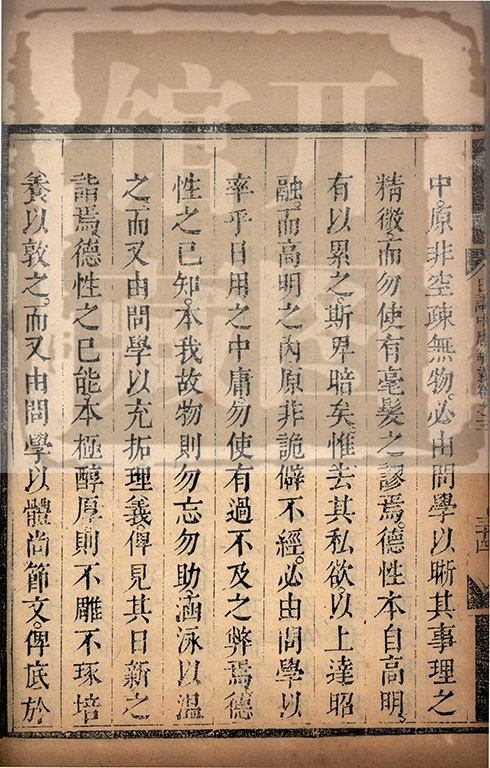 中。原非空疎無物。必由問學以晰其事理之
精微。而勿使有毫髮之謬焉。德性本自高明。
有以累之。斯卑暗矣。惟去其私欲。以上達昭
融。而高明之內。原非詭僻不經。必由問學以
率乎日用之中庸。勿使有過不及之弊焉。德
性之已知。本我故物則勿忘勿助。涵泳以溫
之。而又由問學以充拓理義。俾見其日新之
詣焉。德性之已能。本極醇厚則不雕不琢。培
養以敦之。而又由問學以體尚節文。俾底於
日講中庸解義卷之三
三十四